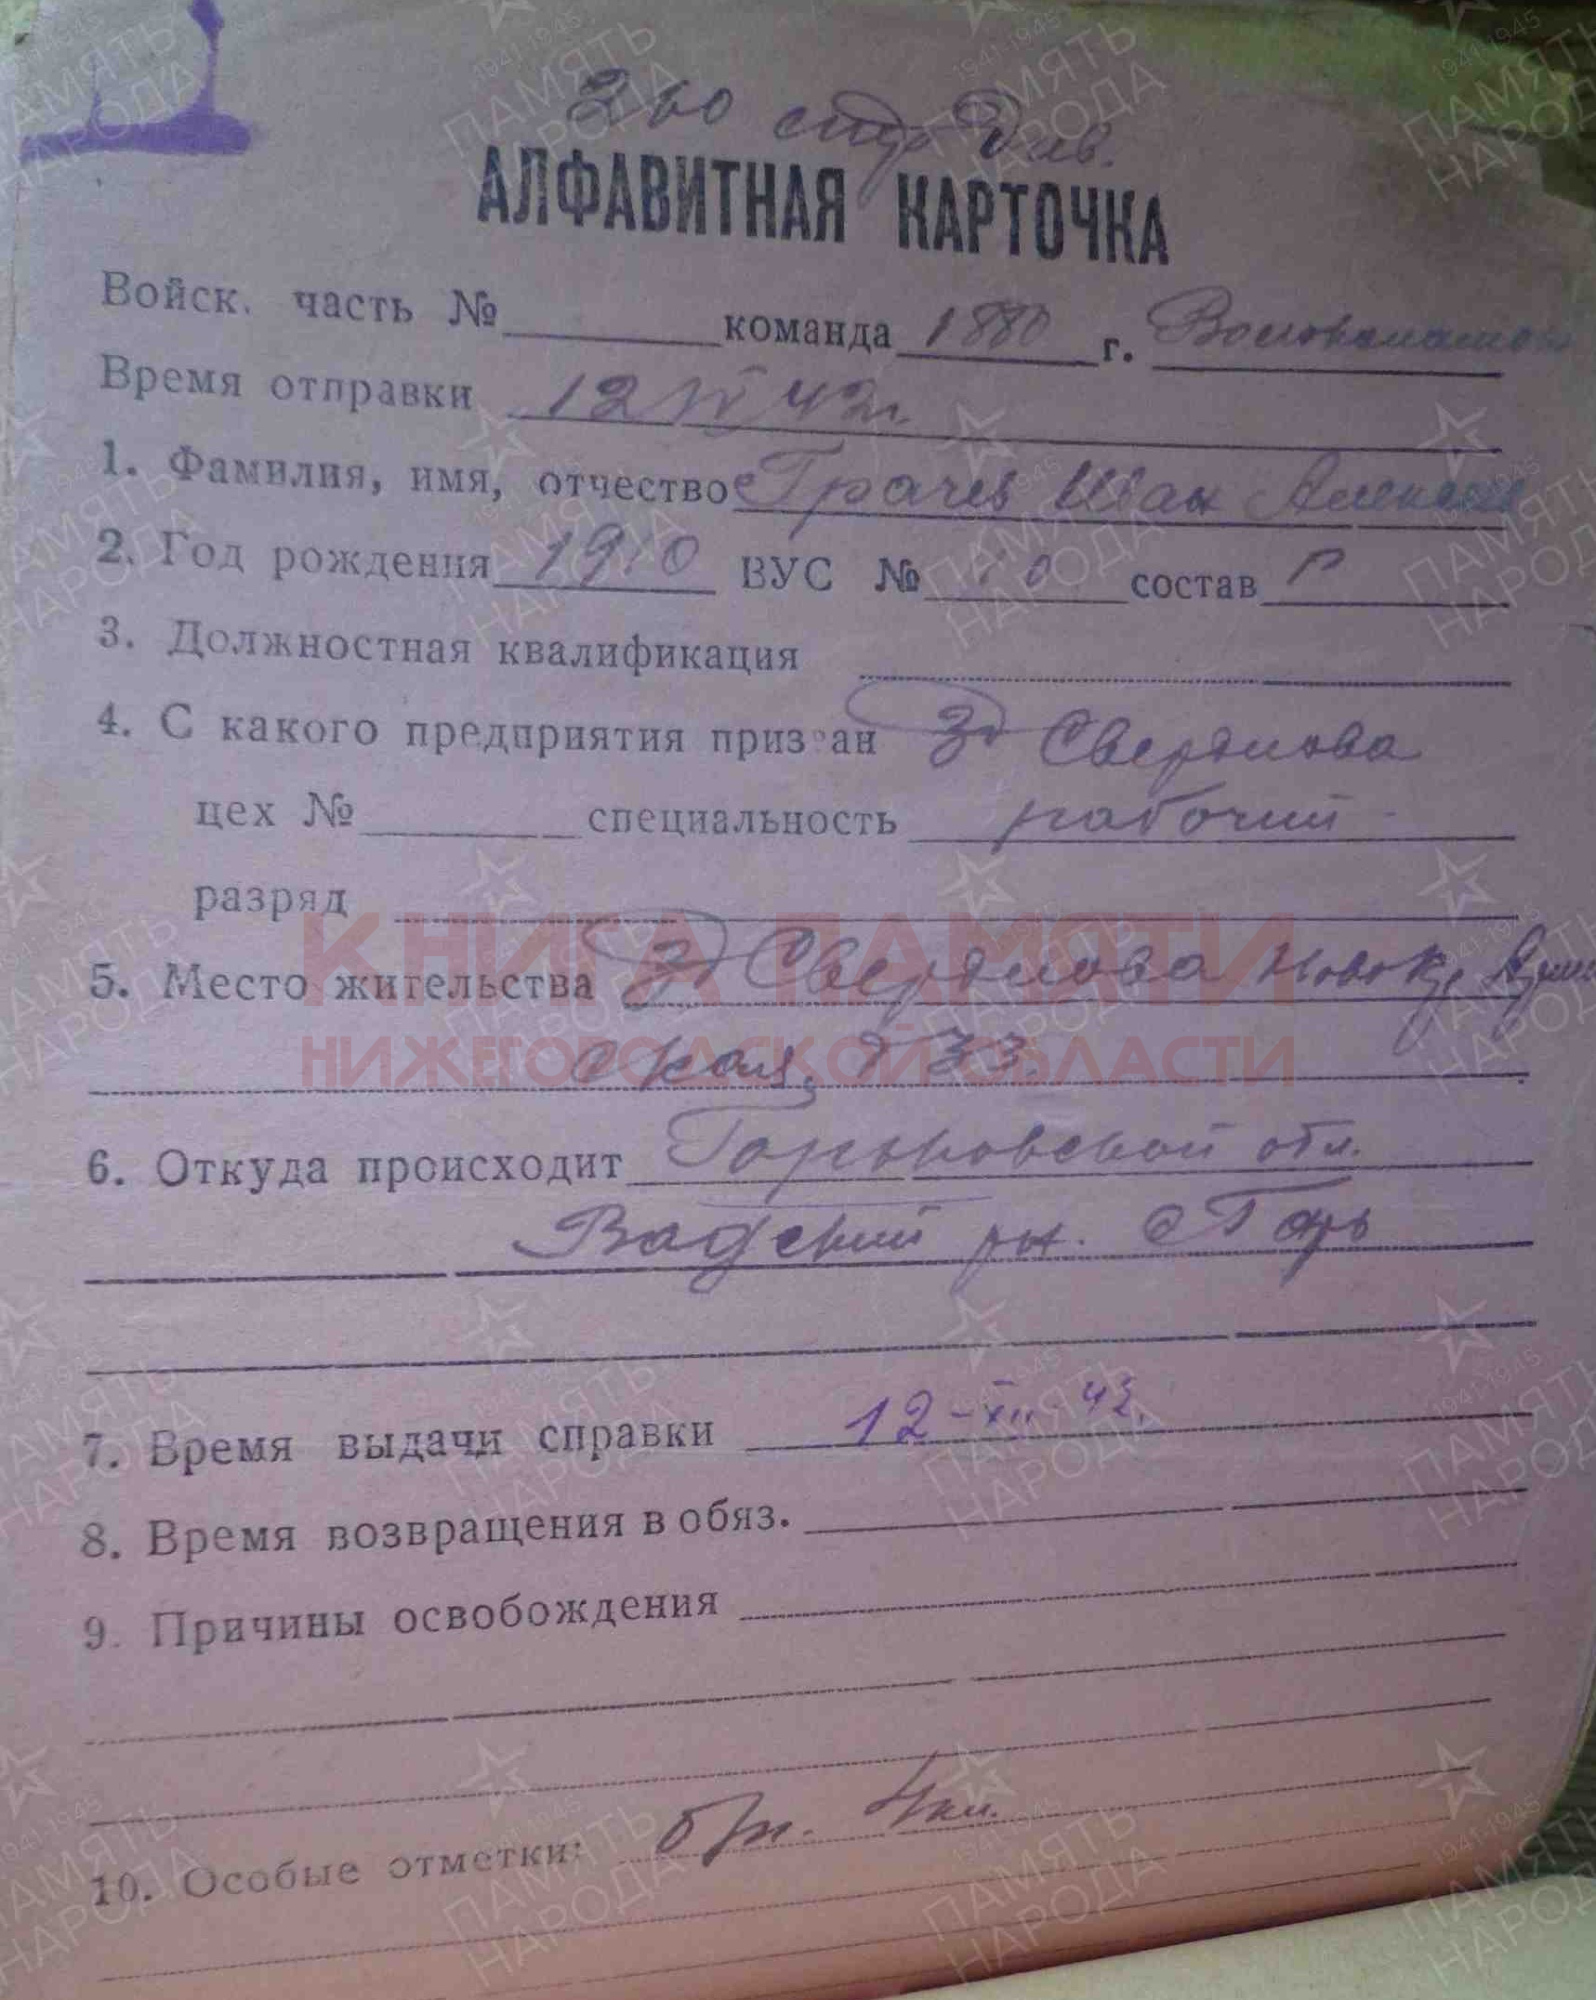 260 стр див.
АЛФАВИТНАЯ КАРТОЧКА
Войск. часть № команда 1880 г. Волоколамск
Время отправки 12 42г.
1. Фамилия, имя, отчество Грачев Иван Алексеев
2. Год рождения 1910 ВУС № 10 состав Р
3. Должностная квалификация
4. С какого предприятия призван Зд Свердлова
цех № специальность рабочий
разряд
5. Место жительства Зд Свердлова
ская, 33.
6. Откуда происходит Горьковской обл.
Вадский рн. с Гарь
7. Время выдачи справки 12-XII-42.
8. Время возвращения в обяз.
9. Причины освобождения
10. Особые отметки: б/п. 4 кл.
КНИГА ПАМЯТИ
НИЖЕГОРОДСКОЙ ОБЛАСТИ
ПАМЯТЬ НАРОДА
1941-1945